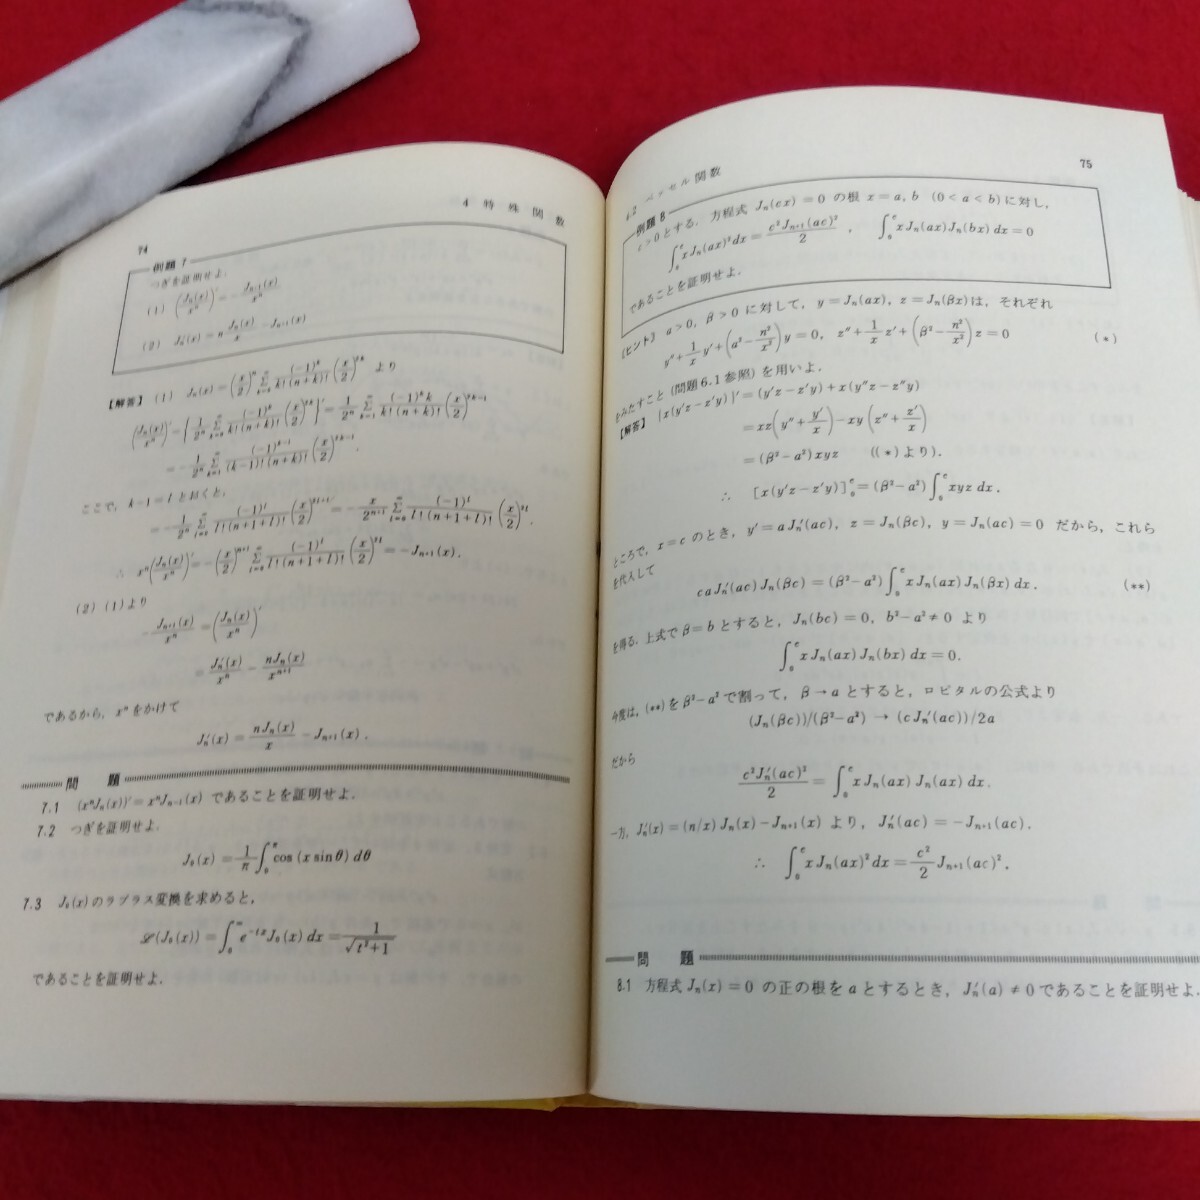 74
4 特殊関数
例題 7
つぎを証明せよ.
(1) (J_n(x)/x^n)′ = −J_{n-1}(x)/x^n
(2) J_n′(x) = n J_n(x)/x − J_{n+1}(x)
【解答】 (1) J_n(x) = (x/2)^n Σ_{k=0}^∞ (−1)^k/(k!(n+k)!) (x/2)^{2k} より
(J_n(x)/x^n)′ = {1/2^n Σ_{k=0}^∞ (−1)^k/(k!(n+k)!) (x/2)^{2k}}′ = 1/2^n Σ_{k=1}^∞ (−1)^k k/(k!(n+k)!) (x/2)^{2k−1}
= −1/2^n Σ_{k=1}^∞ (−1)^{k−1}/((k−1)!(n+k)!) (x/2)^{2k−1}.
ここで, k−1=l とおくと,
= −1/2^n Σ_{l=0}^∞ (−1)^l/(l!(n+1+l)!) (x/2)^{2l+1} = −x/2^{n+1} Σ_{l=0}^∞ (−1)^l/(l!(n+1+l)!) (x/2)^{2l}.
∴ x^n(J_n(x)/x^n)′ = −(x/2)^{n+1} Σ_{l=0}^∞ (−1)^l/(l!(n+1+l)!) (x/2)^{2l} = −J_{n+1}(x).
(2) (1)より
−J_{n+1}(x)/x^n = (J_n(x)/x^n)′
= J_n′(x)/x^n − nJ_n(x)/x^{n+1}
であるから, x^n をかけて
J_n′(x) = nJ_n(x)/x − J_{n+1}(x).
問 題
7.1 (x^n J_n(x))′ = x^n J_{n−1}(x) であることを証明せよ.
7.2 つぎを証明せよ.
J_0(x) = 1/π ∫_0^π cos(x sin θ) dθ
7.3 J_0(x) のラプラス変換を求めると,
ℒ(J_0(x)) = ∫_0^∞ e^{−tx} J_0(x) dx = 1/√(t²+1)
であることを証明せよ.
4.2 ベッセル関数
75
例題 8
c>0とする. 方程式 J_n(cx)=0 の根 x=a, b (0<a<b)に対し,
∫_0^c xJ_n(ax)² dx = c²J_{n+1}(ac)²/2 , ∫_0^c xJ_n(ax)J_n(bx) dx = 0
であることを証明せよ.
【ヒント】 α>0, β>0 に対して, y=J_n(αx), z=J_n(βx)は, それぞれ
y″+1/x y′+(α²−n²/x²)y=0, z″+1/x z′+(β²−n²/x²)z=0 (*)
をみたすこと (問題6.1参照) を用いよ.
【解答】 {x(y′z−z′y)}′=(y′z−z′y)+x(y″z−z″y)
=xz(y″+y′/x)−xy(z″+z′/x)
=(β²−a²)xyz ((*)より).
∴ [x(y′z−z′y)]_0^c=(β²−a²)∫_0^c xyz dx.
ところで, x=c のとき, y′=aJ_n′(ac), z=J_n(βc), y=J_n(ac)=0 だから, これら
を代入して
caJ_n′(ac)J_n(βc)=(β²−a²)∫_0^c xJ_n(ax)J_n(βx) dx. (**)
を得る. 上式で β=b とすると, J_n(bc)=0, b²−a²≠0 より
∫_0^c xJ_n(ax)J_n(bx) dx=0.
今度は, (**)を β²−a² で割って, β→a とすると, ロピタルの公式より
(J_n(βc))/(β²−a²) → (cJ_n′(ac))/2a
だから
c²J_n′(ac)²/2 = ∫_0^c xJ_n(ax)J_n(ax) dx.
一方, J_n′(x)=(n/x)J_n(x)−J_{n+1}(x) より, J_n′(ac)=−J_{n+1}(ac).
∴ ∫_0^c xJ_n(ax)² dx = c²/2 J_{n+1}(ac)².
問 題
8.1 方程式 J_n(x)=0 の正の根を a とするとき, J_n′(a)≠0であることを証明せよ.